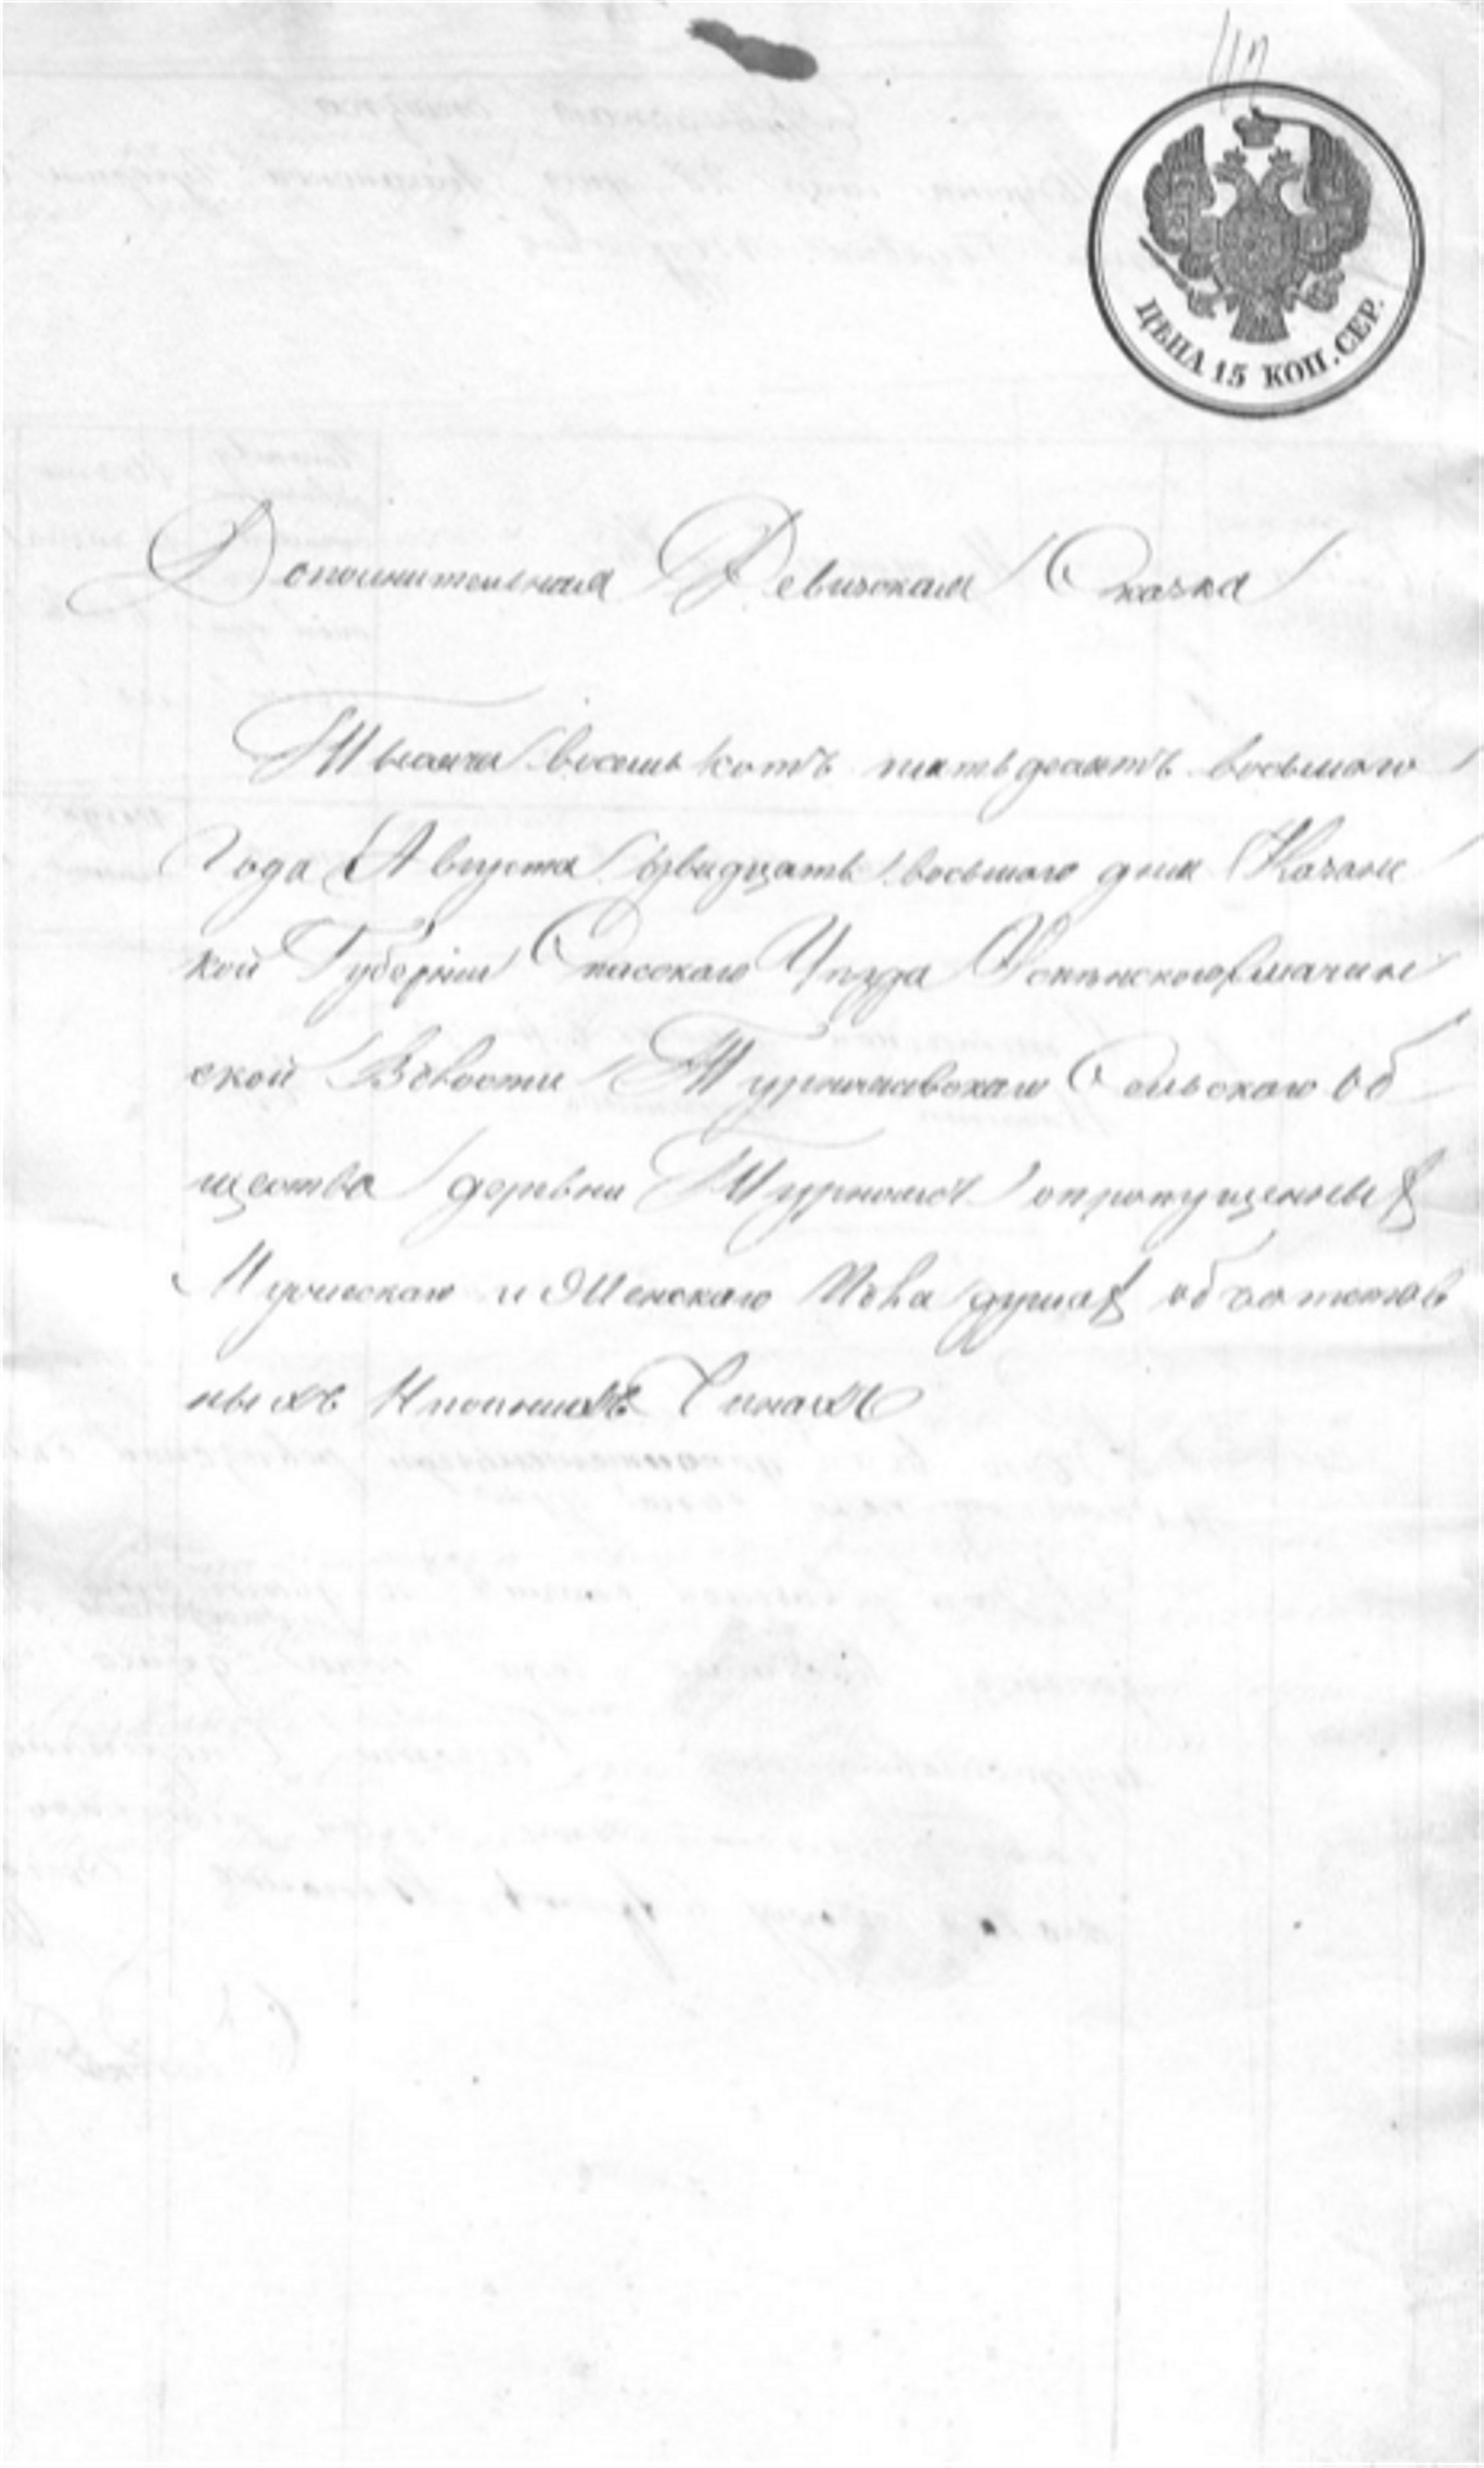 ЦѢНА 15 КОП. СЕР.
Дополнительная Ревизская Сказка
Тысяча восемь сотъ пятьдесятъ восьмого
Года Августа двадцать восьмого дня Казанс
кой Губернии Спасскаго Уезда
ской Волости Сельскаго об
щества деревни опропущенныхъ
Мужескаго и Женскаго Пола душахъ
ныхъ